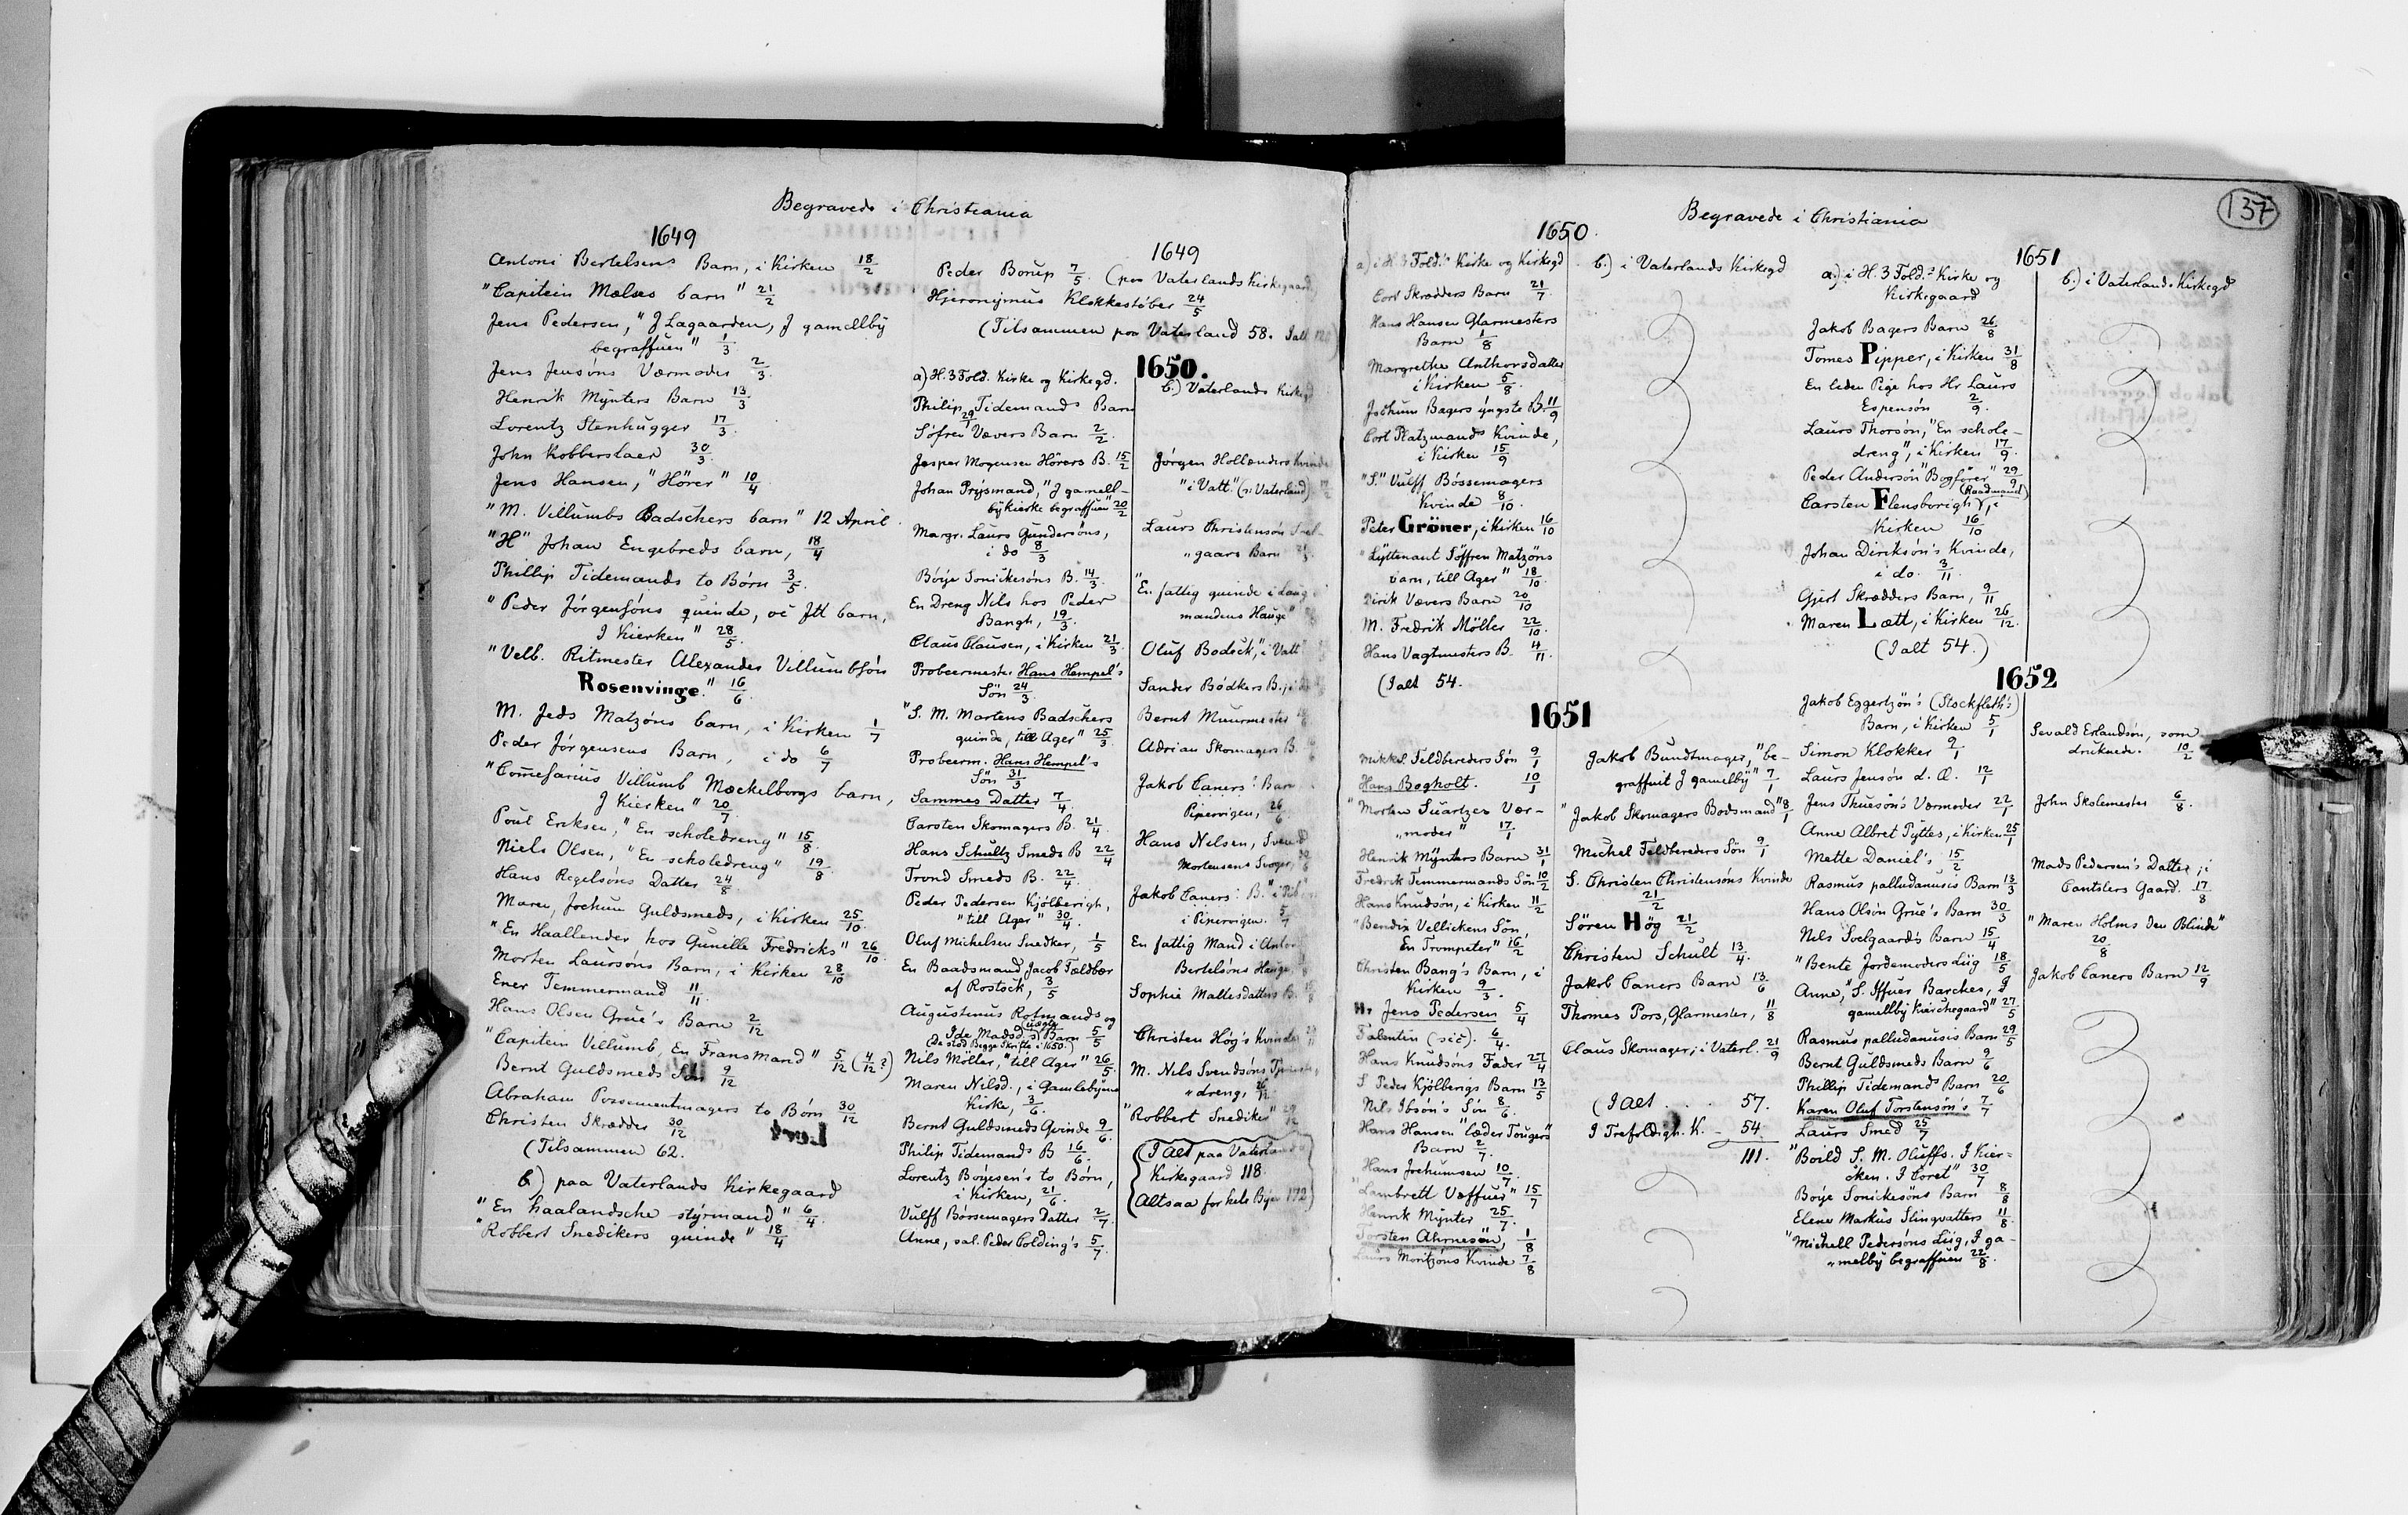 Begravede i Christiania
1649
Antoni Bertelsens Barn, i Kirken 18/2
"Capitein Mælses barn" 21/2
Jens Pedersen, "J Lagaarden, J gamellbÿ
begraffuen" 1/3
Jens Jensöns Værmoder 2/3
Henrik Mÿnters Barn 13/3
Lorentz Stenhugger 17/3.
John Kobberslaer 30/3.
Jens Hansen, "Hörer" 10/4
"M. Villumbs Badschers barn" 12 April.
"H" Johan Engebreds barn, 18/4
Phillip Tidemands to Börn 3/5.
"Peder Jörgensöns quinde, oc Jtt barn,
J Kierken" 28/5.
"Velb. Ritmester Alexander Villumbsön
Rosenvinge." 16/6
M. Jeds Matzöns barn, i Kirken 1/7
Peder Jörgensens Barn, i do 6/7
"Com̄esarius Villumb Mæckelborgs barn,
J Kierken" 20/7
Poul Ericksen, "En scholedreng" 15/8.
Niels Olsen, "En scholedreng" 19/8
Hans Regelsöns Datter 24/8
Maren, Jochum Guldsmeds, i Kirken 25/10.
"En Haallender hos Gunelle Fredricks" 26/10.
Morten Laursöns Barn, i Kirken 28/10
Ener Temmermand 11/11.
Hans Olsen Grue's Barn 2/12
"Capitein Villumb, En Frans Mand" 5/12 (4/12?)
Bernt Guldsmeds Sön 9/12
Abraham Possementmagers to Börn 30/12
Christen Skrædder 30/12
(Tilsammen 62.
b) paa Vaterlands Kirkegaard
"En haalandsche stÿrmand" 6/4.
"Robbert Snedikers quinde" 18/4
1649
Peder Borup 7/5. (paa Vaterlands Kirkegaard)
Hjeronijmus Klokkestöber 24/5
(Tilsammen paa Vaterland 58. Ialt
1650.
a) H. 3 Fold. Kirke og Kirkegd.
Philip Tidemands Barn
29/1
Söfren Vævers Barn 2/2.
Jesper Mogensen Hörers B. 15/2
Johan Prijsmand, "J gamell-
bÿ Kierke begraffuen" 20/2
Margr. Laurs Gundersöns,
i do 8/3
Böije Sonickesöns B. 14/3.
En Dreng Nils hos Peder
Bangh, 19/3.
Claus Clausen, i Kirken 21/3.
Probeermester Hans Hempel's
Sön 24/3.
"S. M. Martens Badschers
quinde, till Ager" 25/3
Probeerm. Hans Hempel's
Sön 31/3
Sammes Datter 7/4.
Carsten Skomagers B. 21/4.
Hans Schultz Smeds B 22/4
Trond Smeds B. 22/4.
Peder Pedersen Kjölberigh,
"till Ager" 30/4.
Oluf Michelsen Snedker, 1/5
En Baadsmand Jacob Fældbær
af Rostock, 3/5
Augustinus Rotmands og
Ide Madsd's Barn 5/5
(De stod Begge Skrifte i 1650.)
Nils Möller, "till Ager" 26/5
Maren Nilsd., i Gamlebÿens
Kirke, 3/6.
Bernt Guldsmeds Qvinde 9/6.
Philip Tidemands B 16/6.
Lorentz Böyesen's to Börn,
i Kirken, 21/6.
Vulff Börssemagers Datter 2/7.
Anne, sal. Peder Colding's 5/7.
b.) Vaterlands Kirkegd
Jörgen Hollænders Kvinde
"i Vatt." (ɔ: Vaterland)
Laurs Christensön
"gaars Barn
"En fattig quinde i Laug
mandens Hauge"
Oluf Bodsck, "i Vatt"
Sander Bödkers B.
Bernt Muurmester
Adrian Skomagers B.
Jakob Caners' Barn
Pipervigen, 26/6
Hans Nilsen, Svend
Mortensens Svoger,
Jakob Caners' B.
i Pipervigen. 5/7
En fattig Mand i Anton
Bertelsöns Hauge
Sophie Mattesdatters B.
Christen Hög's Kvinde
M. Nils Svendsöns
"dreng,
"Robbert Snediker"
(I Alt paa Vaterlands
Kirkegaard 118.
Altsaa for hele Byen 172)
137
Begravede i Christiania
1650.
a) i H. 3 Fold.s Kirke og Kirkegd
Cort Skrædders Barn 21/7.
Hans Hansen Glarmesters
Barn 1/8
Margrethe Anthorsdatter
i Kirken 5/8.
Jochum Bagers ÿngste B. 11/9
Cort Platzmands Kvinde,
i Kirken 15/9
"S." Vulff Bössemagers
Kvinde 8/10.
Peter Gröner, i Kirken 16/10
"Lÿttenant Söffren Matzöns
barn, till Ager" 18/10.
Dirik Vævers Barn 20/10
M. Fredrik Möller 22/10.
Hans Vagtmesters B. 4/11.
(Ialt 54.
b.) i Vaterlands Kirkegd
1651
Mikkel Feldbereders Sön 9/1
Hans Bogholt. 10/1
"Morten Suartzes Vær-
"moder" 17/1
Henrik Mÿnters Barn 31/1
Fredrik Temmermands Sön 10/2
Hans Knudsön, i Kirken 11/2
"Bendix Vellickens Sön,
En Trompeter" 16/2
Christen Bang's Barn, i
Kirken 9/3.
Hr Jens Pedersen 5/4
Falentin (sic). 6/4.
Hans Knudsöns Fader 27/4
S Peder Kjölbergs Barn 13/5
Nils Ibsön's Sön 8/6.
Hans Hansen "læder Tougers"
Barn 2/7.
Hans Jochumsen 10/7.
"Lambrett Væffuer" 15/7
Henrik Mÿnter 25/7.
Torsten Ahrnesön, 1/8
Laurs Moritzöns Kvinde 7/8
Jakob Bundtmager, "be-
graffuit J gamelbÿ" 7/1
"Jakob Skomagers Bodsmand" 8/1
Michel Feldbereders Sön 9/1
S. Christen Christensöns Kvinde
21/2
Sören Hög 21/2
Christen Schult 13/4.
Jakob Caners Barn 13/6
Thomes Pors, Glarmester, 11/8
Claus Skomager, i Vaterl. 21/9
(I Alt . . . 57.
I Trefoldigh. K. - 54.
111.
1651
a.) i H. 3 Fold.s Kirke og
Kirkegaard
Jakob Bagers Barn 26/8
Tomes Pipper, i Kirken 31/8
En liden Pige hos Hr Laurs
Espensön 2/9.
Laurs Thorsön, "En schole-
dreng", i Kirken 17/9.
Peder Andersön "Bogförer" 29/9
(Raadmand)
Carsten Flensborigh, i
Kirken 16/10
Johan Diriksön's Kvinde,
i do. 3/11.
Gjert Skrædders Barn, 9/11
Maren Lætt, i Kirken 26/12.
(Ialt 54.)
b.) i Vaterlands Kirkegd
1652
Jakob Eggertzön's (Stockfleth's)
Barn, i Kirken 5/1
Simon Klokker 9/1
Laurs Jensön d. Æ. 12/1
Jens Thuesön's Værmoder 22/1
Anne Albret Pÿttes, i Kirken 25/1
Mette Daniel's 15/2
Rasmus palludanusis Barn 13/3
Hans Olsön Grue's Barn 30/3
Nils Soelgaard's Barn 15/4
"Bente Jordemoders Liig 18/5
Anne, "S. Iffuer Barckes, J
gamellbÿ Kierchegaard" 27/5
Rasmus palludanusis Barn 29/5
Bernt Guldsmeds Barn 9/6
Phillip Tidemands Barn 20/6
Karen Oluf Torstensön's 7/7
Laurs Smed 25/7
"Boild S. M. Oluffs. J Kier=
cken. J Coret" 30/7
Boÿe Sonickesöns Barn 8/8
Elene Markus Slingvatters 11/8.
"Michell Pedersöns Liig, J ga-
"melbÿ begraffuen 22/8.
Sevald Erlandsön, som
druknede. 10/2
John Skolemester 6/8.
Mads Pedersen's Datter, i
Cantslers Gaard. 17/8
"Maren Holms den Blinde"
20/8
Jakob Caners Barn 12/9